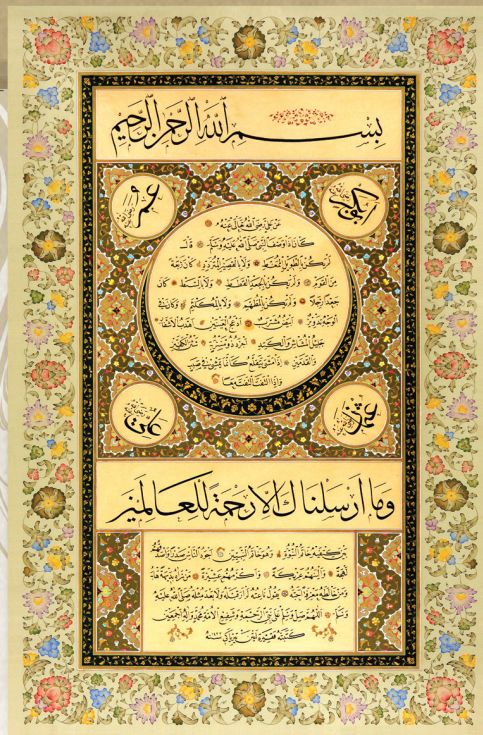 بسم الله الرحمن الرحيم
ابو بكر
عمر
عن علي رضي الله تعالى عنه
كان اذا وصف النبي صلى الله عليه وسلم قال
لم يكن بالطويل الممغط ولا بالقصير المتردد وكان ربعة
من القوم ولم يكن بالجعد القطط ولا بالسبط كان
جعدا رجلا ولم يكن بالمطهم ولا بالمكلثم وكان في
الوجه تدوير ابيض مشرب ادعج العينين اهدب الاشفار
جليل المشاش والكتد اجرد ذو مسربة شثن الكفين
والقدمين اذا مشى يتقلع كانما يمشي في صبب
واذا التفت التفت معا
عثمان
علي
وما ارسلناك الا رحمة للعالمين
بين كتفيه خاتم النبوة وهو خاتم النبيين اجود الناس صدرا
لهجة والينهم عريكة واكرمهم عشيرة من رآه بديهة هابه
ومن خالطه معرفة احبه يقول ناعته لم ار قبله ولا بعده مثله صلى الله عليه
وسلم اللهم صل وسلم على نبي الرحمة وشفيع الامة محمد وآله اجمعين